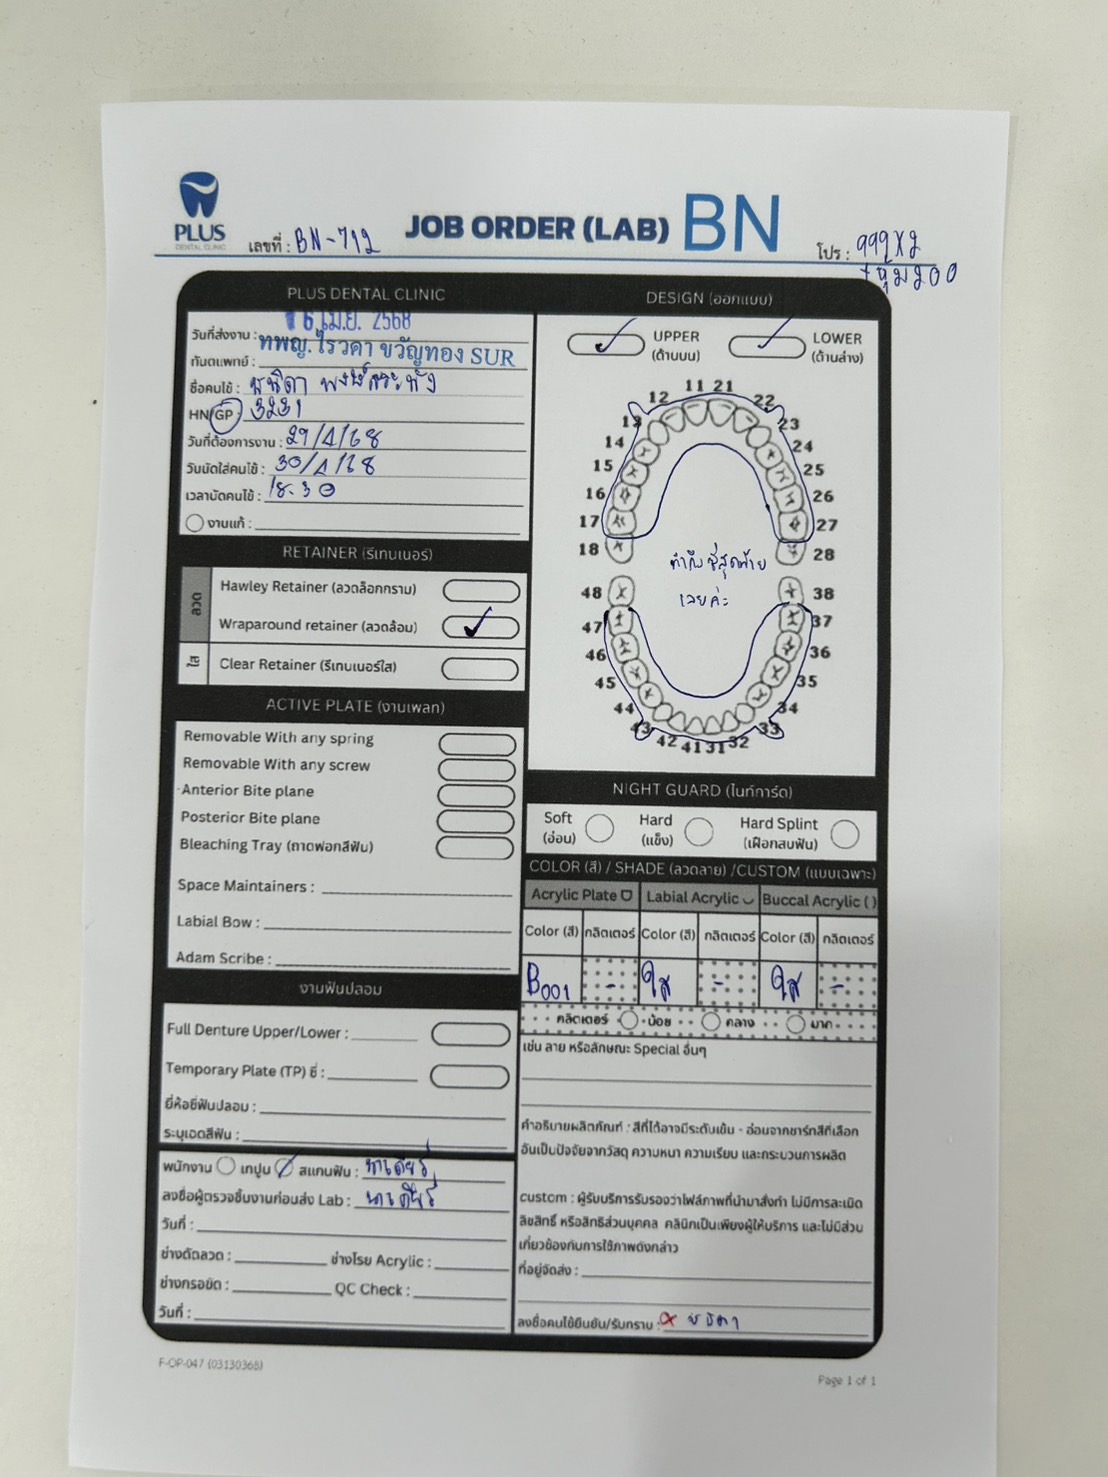 PLUS
DENTAL CLINIC
เลขที่ : BN-712
JOB ORDER (LAB) BN
โปร : 999X2
+หุ้ม200
PLUS DENTAL CLINIC
วันที่ส่งงาน : 16 เม.ย. 2568
ทันตแพทย์ : ทพญ. ไรวดา ขวัญทอง SUR
ชื่อคนไข้ :
HN/GP : 3231
วันที่ต้องการงาน : 29/4/68
วันนัดใส่คนไข้ : 30/4/68
เวลานัดคนไข้ : 18.30
งานแก้ :
RETAINER (รีเทนเนอร์)
ลวด
Hawley Retainer (ลวดล็อกกราม)
Wraparound retainer (ลวดล้อม)
ใส
Clear Retainer (รีเทนเนอร์ใส)
ACTIVE PLATE (งานเพลท)
Removable With any spring
Removable With any screw
Anterior Bite plane
Posterior Bite plane
Bleaching Tray (ถาดฟอกสีฟัน)
Space Maintainers :
Labial Bow :
Adam Scribe :
งานฟันปลอม
Full Denture Upper/Lower :
Temporary Plate (TP) ซี่ :
ยี่ห้อซี่ฟันปลอม :
ระบุเฉดสีฟัน :
พนักงาน เทปูน สแกนฟัน :
ลงชื่อผู้ตรวจชิ้นงานก่อนส่ง Lab :
วันที่ :
ช่างดัดลวด : ช่างโรย Acrylic :
ช่างกรอขัด : QC Check :
วันที่ :
DESIGN (ออกแบบ)
UPPER
(ด้านบน)
LOWER
(ด้านล่าง)
11 21
12 22
13 23
14 24
15 25
16 26
17 27
18 28
ทำถึงซี่สุดท้าย
เลยค่ะ
48 38
47 37
46 36
45 35
44 34
43 33
42 41 31 32
NIGHT GUARD (ไนท์การ์ด)
Soft
(อ่อน)
Hard
(แข็ง)
Hard Splint
(เฝือกสบฟัน)
COLOR (สี) / SHADE (ลวดลาย) /CUSTOM (แบบเฉพาะ)
Acrylic Plate Labial Acrylic Buccal Acrylic ( )
Color (สี) กลิตเตอร์ Color (สี) กลิตเตอร์ Color (สี) กลิตเตอร์
B001 - ใส - ใส -
กลิตเตอร์ น้อย กลาง มาก
เช่น ลาย หรือลักษณะ Special อื่นๆ
คำอธิบายผลิตภัณฑ์ : สีที่ได้อาจมีระดับเข้ม - อ่อนจากชาร์ทสีที่เลือก
อันเป็นปัจจัยจากวัสดุ ความหนา ความเรียบ และกระบวนการผลิต
custom : ผู้รับบริการรับรองว่าไฟล์ภาพที่นำมาสั่งทำ ไม่มีการละเมิด
ลิขสิทธิ์ หรือสิทธิส่วนบุคคล คลินิกเป็นเพียงผู้ให้บริการ และไม่มีส่วน
เกี่ยวข้องกับการใช้ภาพดังกล่าว
ที่อยู่จัดส่ง :
ลงชื่อคนไข้ยืนยัน/รับทราบ : x
F-OP-047 (03130368)
Page 1 of 1